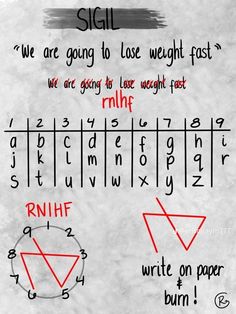 SIGIL
"We are going to lose weight fast"
We are going to lose weight fast
rnlhf
1 2 3 4 5 6 7 8 9
a b c d e f g h i
j k l m n o p q r
s t u v w x y z
RNlHF
9 1 2
8 3
7 4
6 5
write on paper
&
burn!